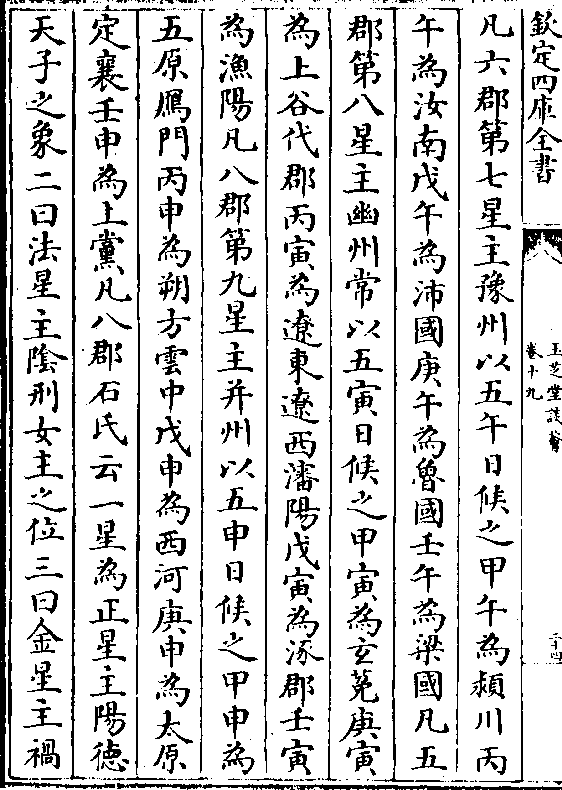 欽定四庫全書
玉芝堂談薈
卷十九
二十四
凡六郡第七星主豫州以五午日候之甲午為潁川丙
午為汝南戊午為沛國庚午為魯國壬午為梁國凡五
郡第八星主幽州常以五寅日候之甲寅為玄菟庚寅
為上谷代郡丙寅為遼東遼西瀋陽戊寅為涿郡壬寅
為漁陽凡八郡第九星主并州以五申日候之甲申為
五原鴈門丙申為朔方雲中戊申為西河庚申為太原
定襄壬申為上黨凡八郡石氏云一星為正星主陽德
天子之象二曰法星主陰刑女主之位三曰金星主禍